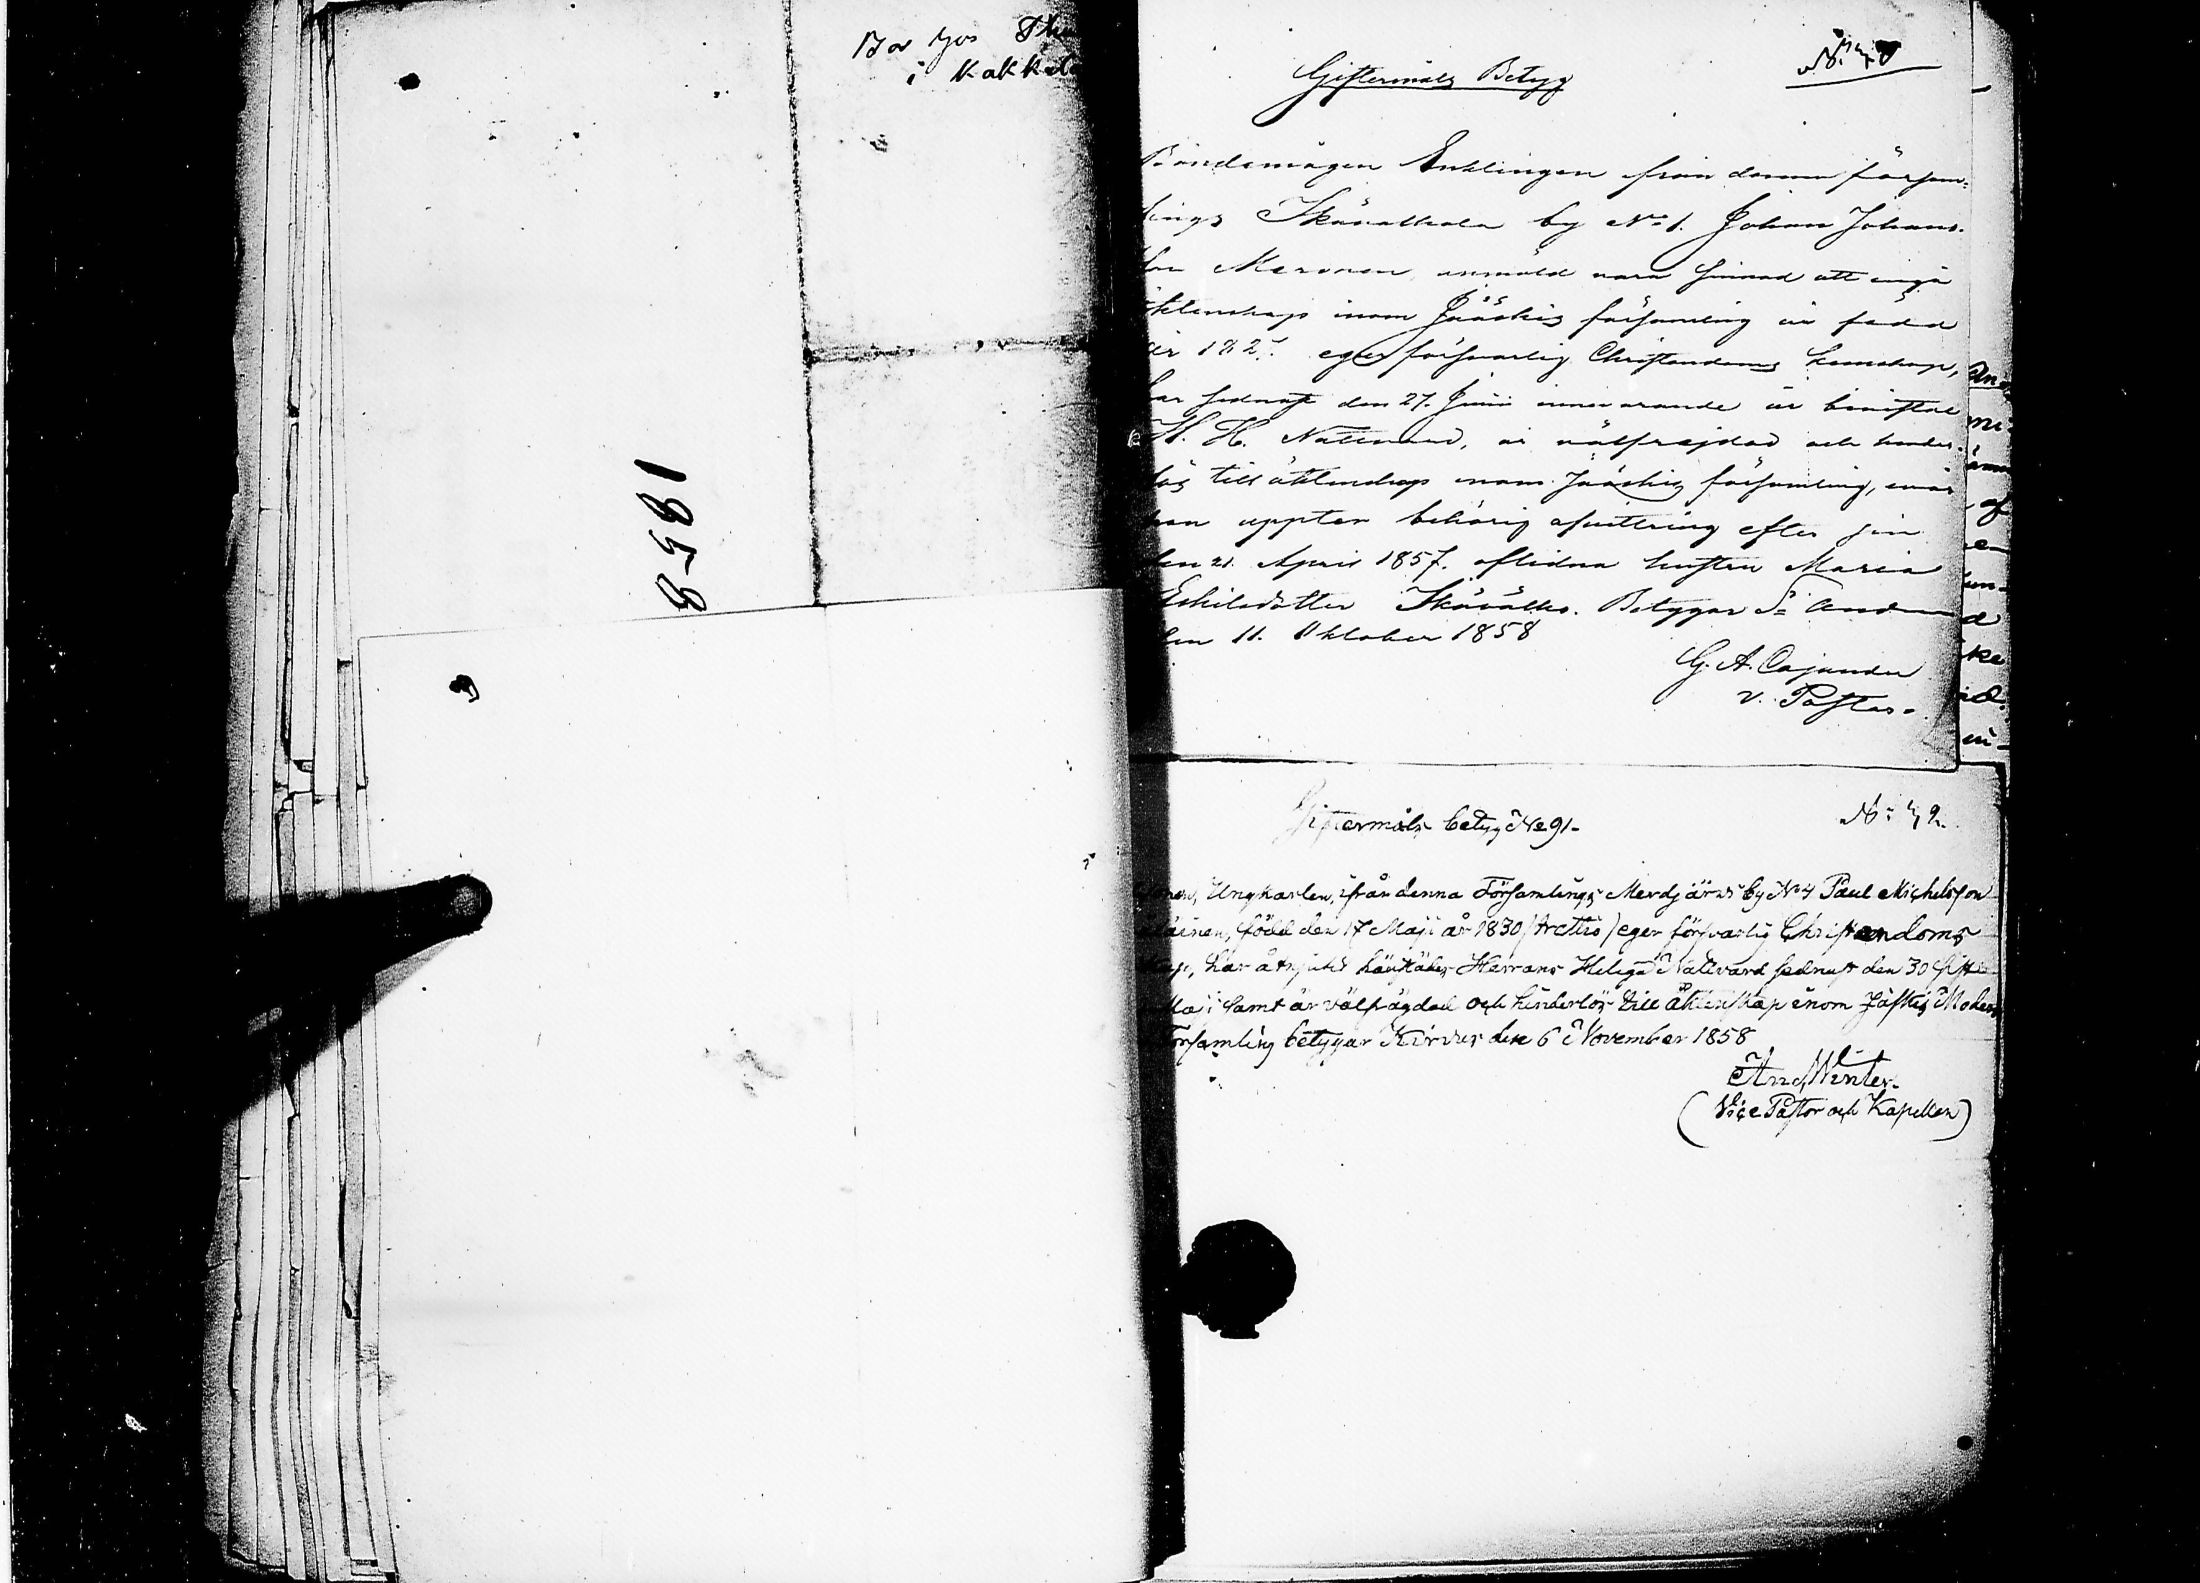 Bor hos
i Kakkola
1858
Giftermåls Betyg
Bondemågen Enklingen från denna församl:
lings Skävalkola by No 1. Johan Johans-
son Meronen, anmäld vara sinnad att ingå
äktenskap inom Jääskis församling är född
år 182 eger försvarlig Christendoms kunskap,
har sednast den 27. Junii innevarande år bevistat
H. H. Nattvard, är välfrejdad och hinder-
lös till äktenskap inom Jääskis församling, enär
han uppter behörig afvittring efter sin
den 21. April 1857. aflidna hustru Maria
Eskilsdotter Skävälko. Betygar St Andreæ
den 11. Oktober 1858
G. A. Cajander
v. Pastor.
Giftermåls betyg No 91.
No 42.
Ungkarlen, ifrån denna Församlings Merdjärvi by No 4 Paul Michelsson
äinen, född den 17 Maji år 1830 /trettio/ eger försvarlig Christendoms
kap, har åtnjutit Herrans Heliga Nattvard sednast den 30 sistl.
Maji samt är välfrägdad och hinderlös till äktenskap inom Jäskis Moder
Församling betygar Kirvus den 6 November 1858
And. Winter.
(Vice Pastor och Kapellan)